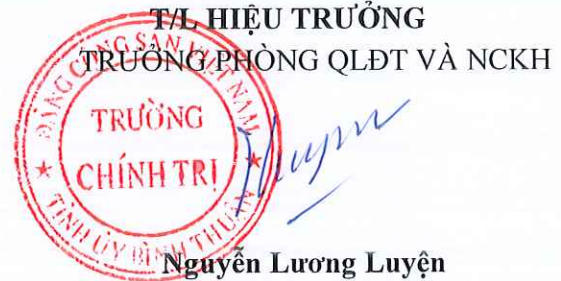 T/L HIỆU TRƯỞNG
TRƯỞNG PHÒNG QLĐT VÀ NCKH
ĐẢNG CỘNG SẢN VIỆT NAM
TRƯỜNG
CHÍNH TRỊ
TỈNH ỦY BÌNH THUẬN
Nguyễn Lương Luyện